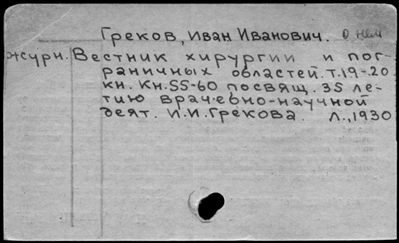 Греков, Иван Иванович. О нем
журн. Вестник хирургии и пог-
раничных областей. т. 19-20
кн. Кн. 55-60 посвящ. 35 ле-
тию врачебно-научной
деят. И.И. Грекова. Л., 1930